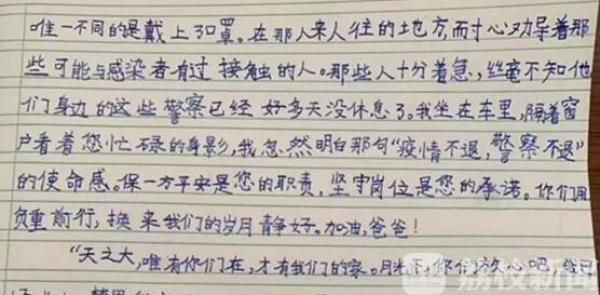 唯一不同的是戴上了口罩。在那人来人往的地方,耐心劝导着那
些可能与感染者有过接触的人。那些人十分着急,丝毫不知他
们身边的这些警察已经好多天没休息了。我坐在车里,隔着窗
户看着您忙碌的身影,我忽然明白那句“疫情不退,警察不退”
的使命感。保一方平安是您的职责,坚守岗位是您的承诺。你们用
负重前行,换来我们的岁月静好。加油,爸爸!
“天之大,唯有你们在,才有我们的家。月光
荔枝新闻